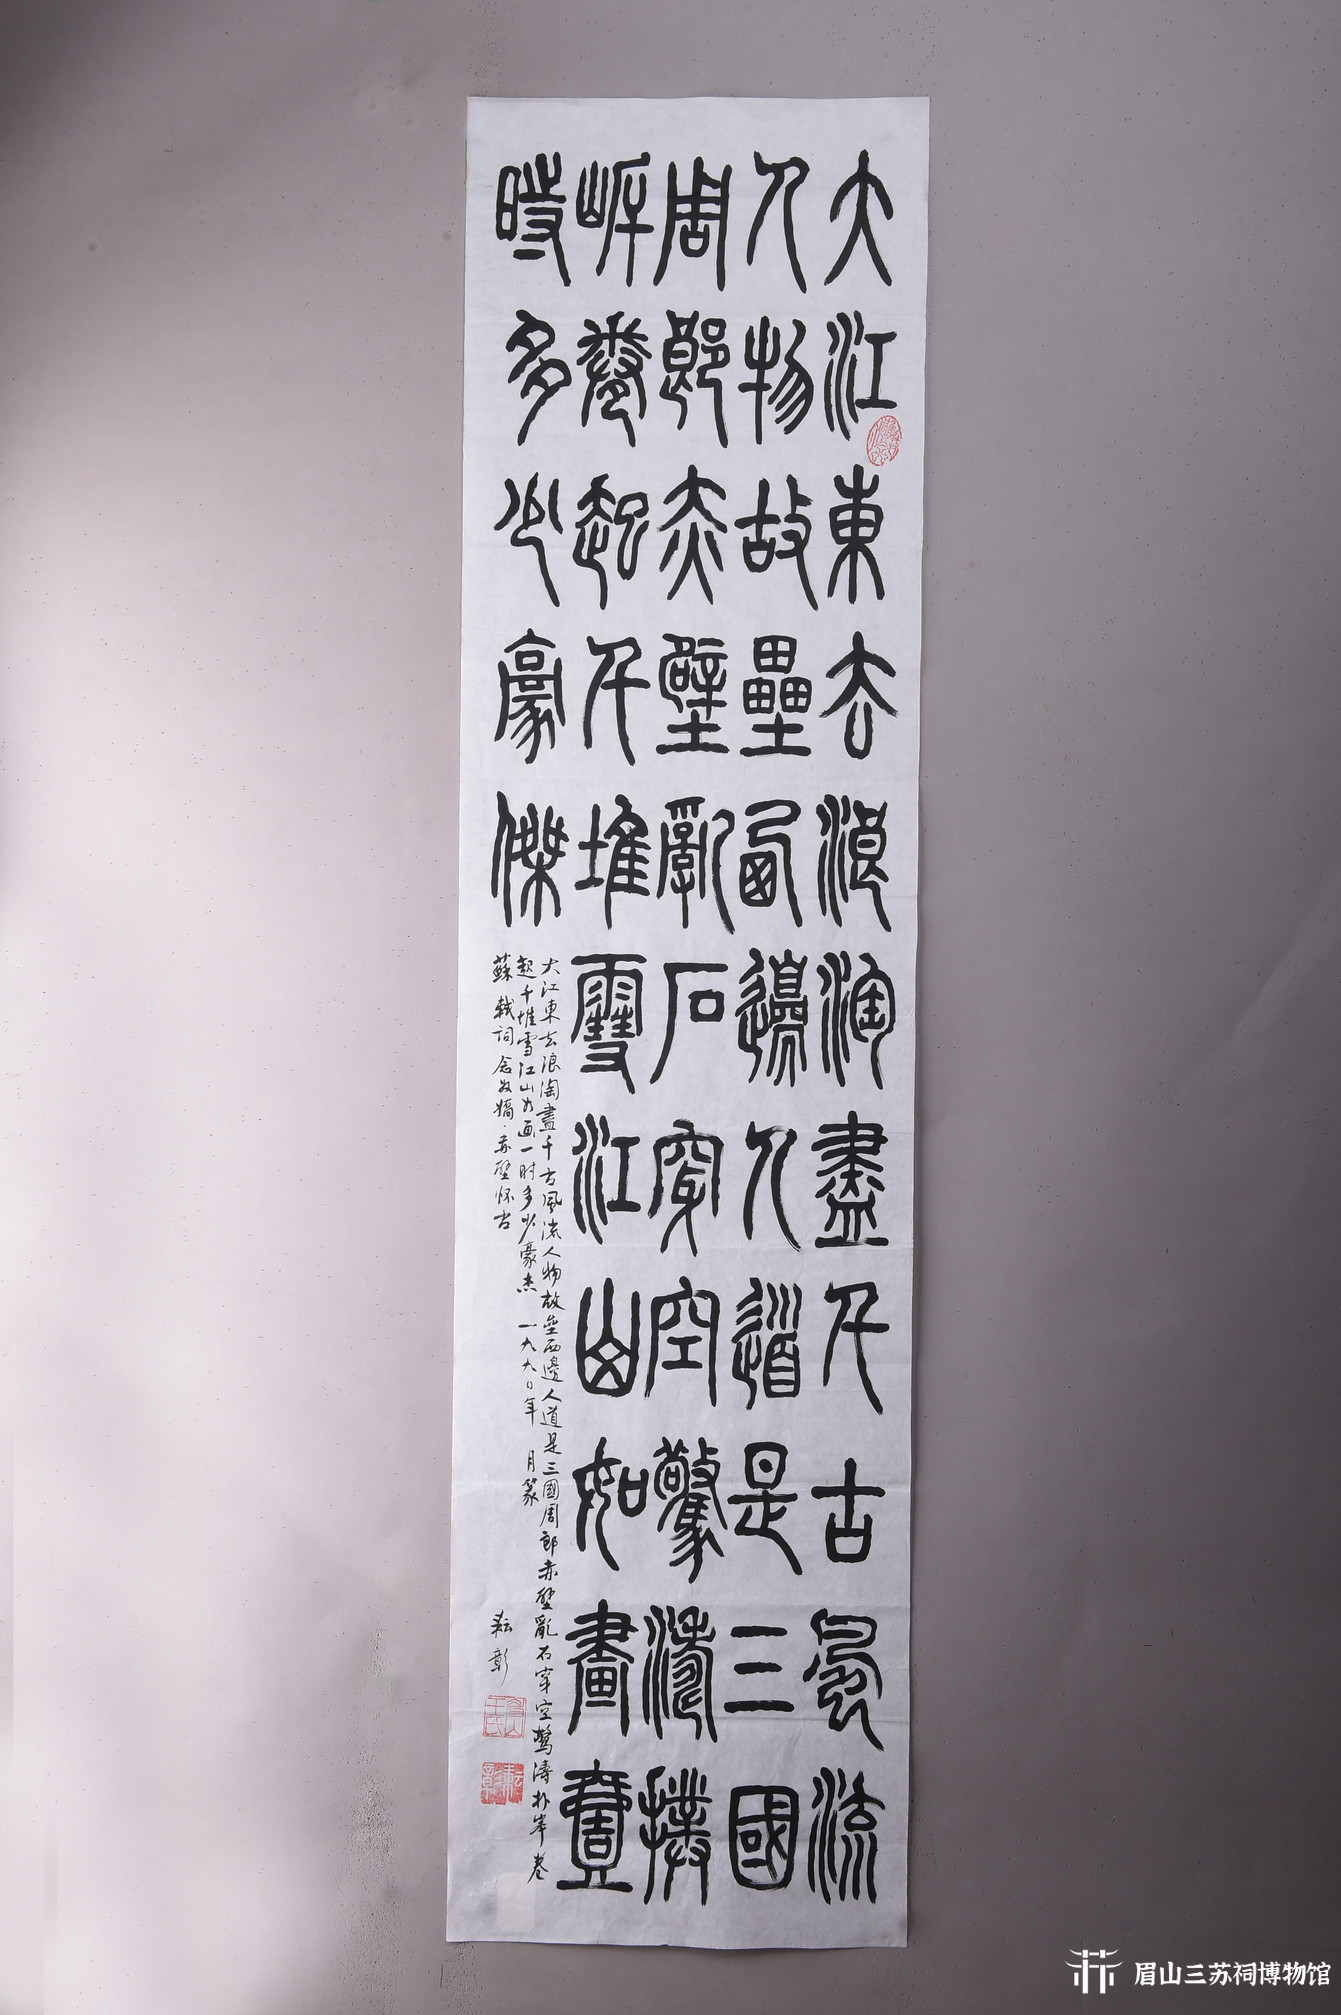 大江東去浪淘盡千古風流
人物故壘西邊人道是三國
周郎赤壁亂石穿空驚濤撲
岸卷起千堆雪江山如畫壹
時多少豪傑
大江東去浪淘盡千古風流人物故壘西邊人道是三國周郎赤壁亂石穿空驚濤扑岸卷
起千堆雪江山如画一时多少豪杰 一九九〇年 月篆
蘇軾詞念奴嬌·赤壁怀古
耘彰
耘彰
眉山三苏祠博物馆